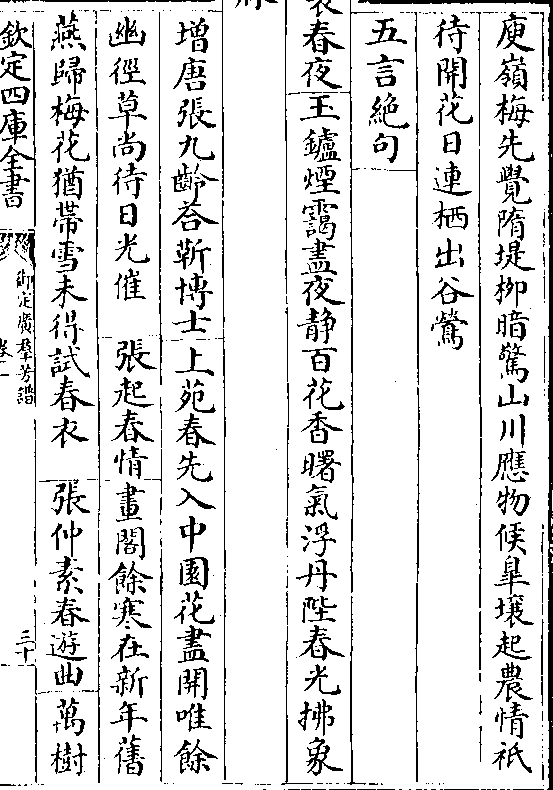 庾嶺梅先覺隋堤柳暗驚山川應物候臯壤起農情祇
待開花日連栖出谷鶯
五言絶句
春夜玉鑪煙靄盡夜静百花香曙氣浮丹陛春光拂象
增唐張九齡荅靳博士上苑春先入中園花盡開唯餘
幽徑草尚待日光催 張起春情畫閣餘寒在新年舊
燕歸梅花猶帶雪未得試春衣 張仲素春遊曲萬樹
欽定四庫全書
御定廣羣芳譜
三十